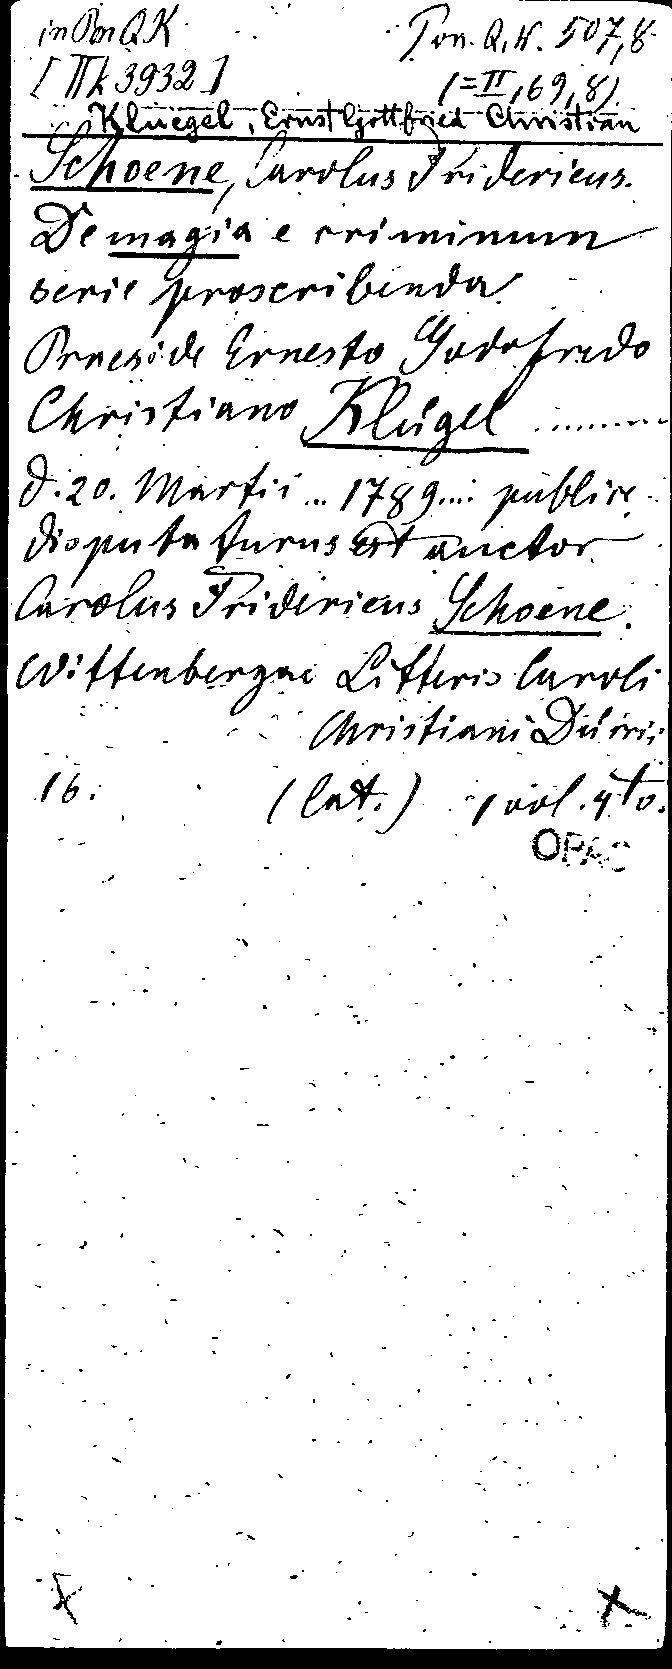 in Pon Q K Pon. Q.K. 507,8
[ II k 3932 ] (= II, 69, 8)
Kluegel, Ernst Gottfried Christian
Schoene, Carolus Fridericus.
De magia e criminum
serie proscribenda.
Praeside Ernesto Godofredo
Christiano Klügel ........
d. 20. Martii ... 1789.... publice
disputaturus est auctor
Carolus Fridericus Schoene.
Wittenbergae Litteris Caroli
Christiani Dürrii
16. (lat.) 1 vol. 4to.
OPAC